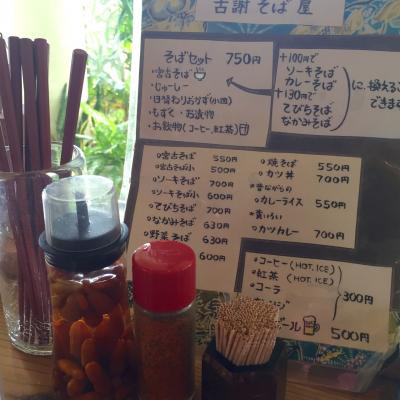 古謝そば屋
そばセット 750円
・宮古そば
・じゅーしー
・日替わりおかず(小皿)
・もずく・お漬物
・お飲物(コーヒー,紅茶)
+100円で
ソーキそば
カレーそば
+130円で
てびちそば
なかみそば
に、換えるこ
できます
宮古そば 550円
宮古そば小 500円
ソーキそば 700円
ソーキそば小 600円
てびちそば 700円
なかみそば 630円
野菜そば 630円
600円
焼そば 550円
カツ丼 700円
昔ながらの
カレーライス 550円
黄いろい
カツカレー 700円
コーヒー(HOT, ICE)
紅茶(HOT, ICE)
コーラ
300円
ール 500円